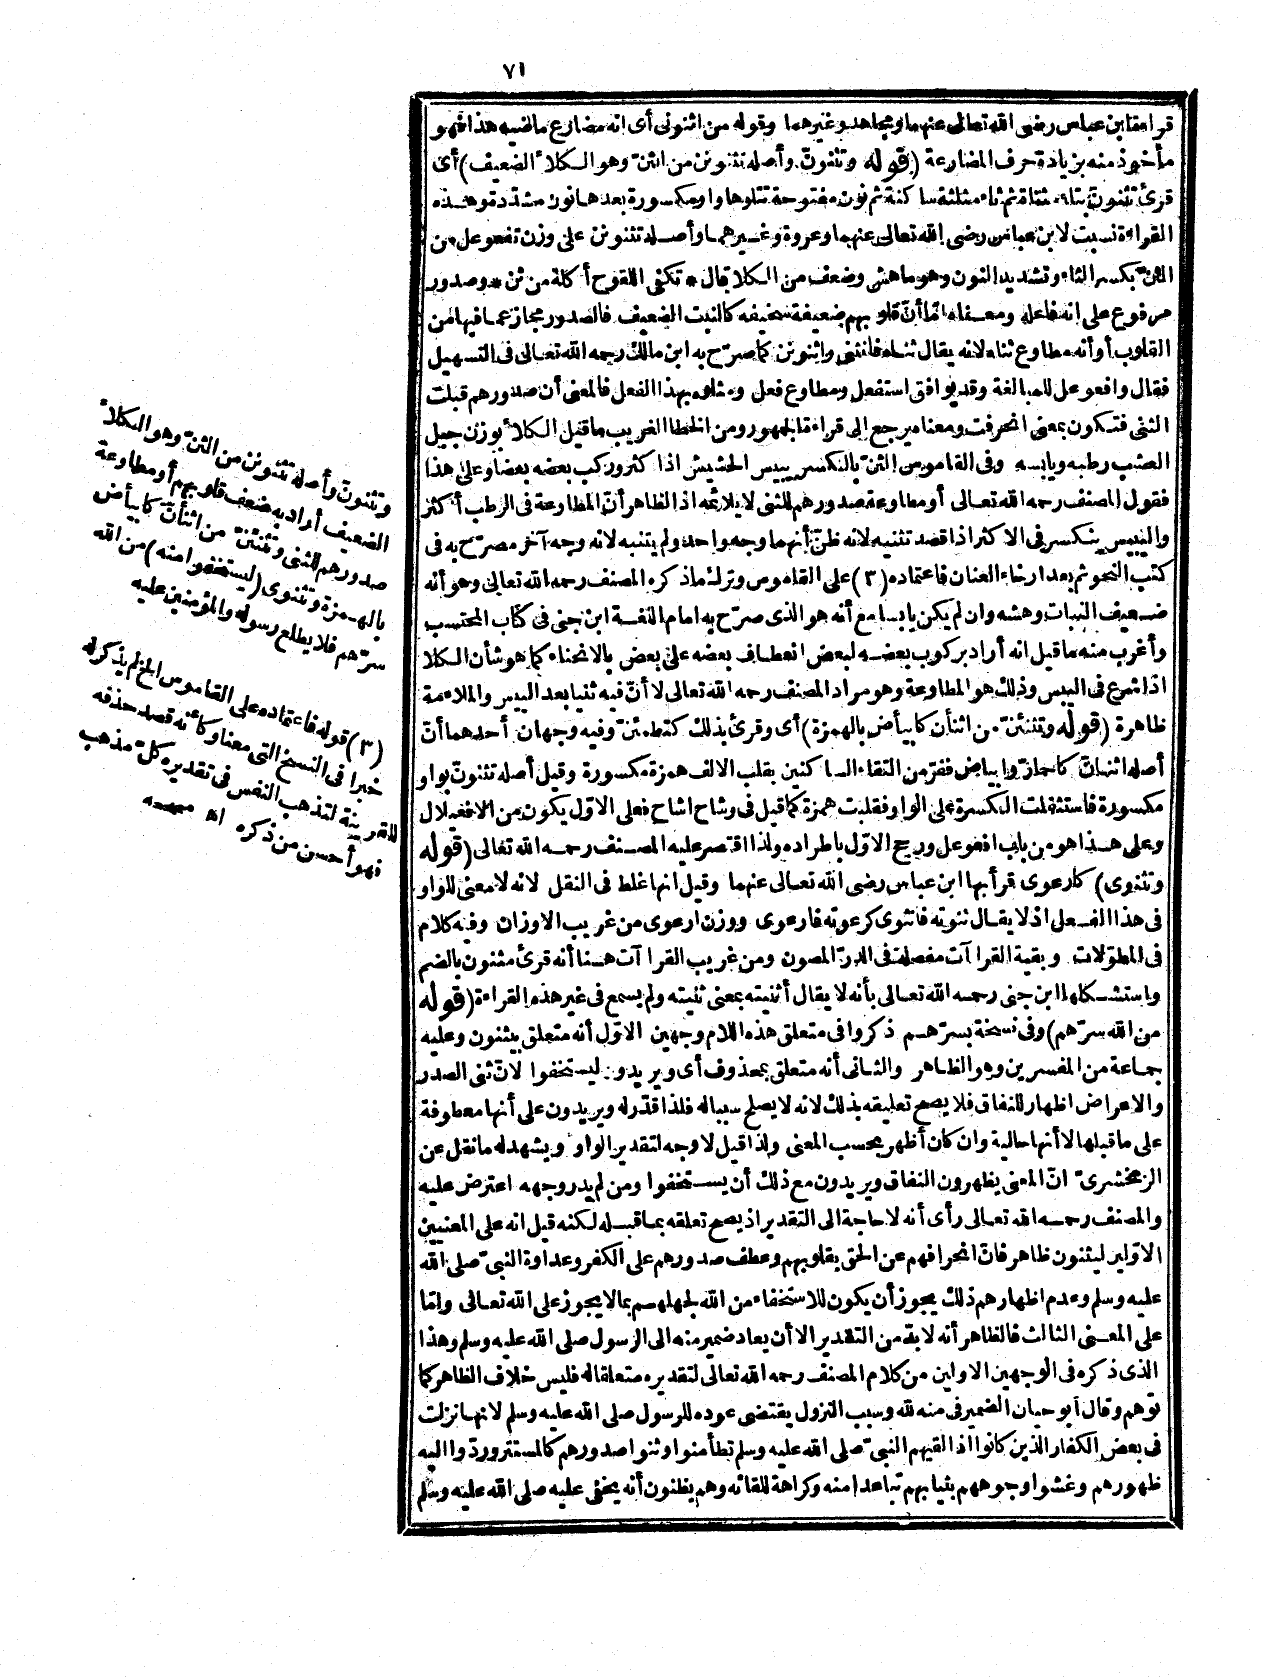 ٧١
قراءة ابن عباس رضى الله تعالى عنهما ومجاهد وغيرهما وقوله من اثنونى أى انه مضارع ماضيه هذا فهو
مأخوذ منه بزيادة حرف المضارعة (قوله وتثنونّ وأصله تثنونن من الثنّ وهو الكلأ الضعيف) أى
قرئ تثنونّ بتاء مثناة ثم ثاء مثلثة ساكنة ثم نون مفتوحة تتلوها واو مكسورة بعدها نون مشددة وهذه
القراءة نسبت لابن عباس رضى الله تعالى عنهما وعروة وغيرهما وأصله تثنونن على وزن تفعوعل من
الثنّ بكسر الثاء وتشديد النون وهو ما هش وضعف من الكلا قال * تكفى اللقوح أكلة من ثن * وصدور
مرفوع على انه فاعله ومعناه امّا أنّ قلوبهم ضعيفة سخيفة كالنبت الضعيف فالصدور مجاز عما فيها من
القلوب أو أنه مطاوع ثناه لانه يقال ثناه فانثنى واثنونن كما صرّح به ابن مالك رحمه الله تعالى فى التسهيل
فقال وافعوعل للمبالغة وقد يوافق استفعل ومطاوع فعل ومثلوه بهذا الفعل فالمعنى أن صدورهم قبلت
الثنى فتكون بمعنى انحرفت ومعناه يرجع الى قراءة الجمهور ومن الخطا الغريب ما قيل الكلأ بوزن جبل
العشب رطبه ويابسه وفى القاموس الثنّ بالكسر يبيس الحشيش اذا كثر وركب بعضه بعضا وعلى هذا
فقول المصنف رحمه الله تعالى أو مطاوعة صدورهم للثنى لا يلائمه اذ الظاهر أنّ المطاوعة فى الرطب أكثر
واليبيس ينكسر فى الاكثر اذا قصد تثنيه لانه ظنّ أنهما وجه واحد ولم يتنبه لانه وجه آخر مصرّح به فى
كتب النحو ثم بعد ارخاء العنان فاعتماده (٣) على القاموس وترك ماذكره المصنف رحمه الله تعالى وهو أنه
ضعيف النبات وهشه وان لم يكن يابسا مع أنه هو الذى صرّح به امام اللغة ابن جنى فى كتاب المحتسب
وأغرب منه ما قيل انه أراد بركوب بعضه لبعض انعطاف بعضه على بعض بالانحناء كما هو شأن الكلا
اذا شرع فى اليبس وذلك هو المطاوعة وهو مراد المصنف رحمه الله تعالى لا أنّ فيه ثنيا بعد اليبس والملاءمة
ظاهرة (قوله وتثنئنّ من اثنأنّ كابيأض بالهمزة) أى وقرئ بذلك كتطمئنّ وفيه وجهان أحدهما أنّ
أصله اثنانّ كاحمارّ وابياض ففرّ من التقاء الساكنين بقلب الالف همزة مكسورة وقيل أصله تثنونّ بواو
مكسورة فاستثقلت الكسرة على الواو فقلبت همزة كما قيل فى وشاح اشاح فعلى الاوّل يكون من الافعيلال
وعلى هذا هو من باب افعوعل ورجح الاوّل باطراده ولذا اقتصر عليه المصنف رحمه الله تعالى (قوله
وتثنوى) كارعوى قرأ بها ابن عباس رضى الله تعالى عنهما وقيل انها غلط فى النقل لانه لا معنى للواو
فى هذا الفعل اذ لا يقال ثنوته فاثنوى كرعوته فارعوى ووزن ارعوى من غريب الاوزان وفيه كلام
فى المطوّلات وبقية القراآت مفصلة فى الدرّ المصون ومن غريب القراآت هنا أنه قرئ مثنون بالضم
واستشكلها ابن جنى رحمه الله تعالى بأنه لا يقال أثنيته بمعنى ثنيته ولم يسمع فى غير هذه القراءة (قوله
من الله سرّهم) وفى نسخة بسرّهم ذكروا فى متعلق هذه اللام وجهين الاوّل أنه متعلق بيثنون وعليه
جماعة من المفسرين وهو الظاهر والثانى أنه متعلق بمحذوف أى ويريدون ليستخفوا لانّ ثنى الصدر
والاعراض اظهار للنفاق فلا يصح تعليقه بذلك لانه لا يصلح سببا له فلذا قدّر له ويريدون على أنها معطوفة
على ما قبلها لا أنها حالية وان كان أظهر بحسب المعنى ولذا قيل لا وجه لتقدير الواو ويشهد له ما نقل عن
الزمخشرىّ انّ المعنى يظهرون النفاق ويريدون مع ذلك أن يستخفوا ومن لم يدر وجهه اعترض عليه
والمصنف رحمه الله تعالى رأى أنه لا حاجة الى التقدير اذ يصح تعلقه بما قبله لكنه قيل انه على المعنيين
الاوّلين ليثنون ظاهر فانّ انحرافهم عن الحق بقلوبهم وعطف صدورهم على الكفر وعداوة النبىّ صلى الله
عليه وسلم وعدم اظهارهم ذلك يجوز أن يكون للاستخفاء من الله لجهلهم بما لا يجوز على الله تعالى وامّا
على المعنى الثالث فالظاهر أنه لا بدّ من التقدير الا أن يعاد ضمير منه الى الرسول صلى الله عليه وسلم وهذا
الذى ذكره فى الوجهين الاولين من كلام المصنف رحمه الله تعالى لتقديره متعلقا له فليس خلاف الظاهر كما
توهم وقال أبو حيان الضمير فى منه لله وسبب النزول يقتضى عوده للرسول صلى الله عليه وسلم لانها نزلت
فى بعض الكفار الذين كانوا اذا لقيهم النبىّ صلى الله عليه وسلم تطأمنوا وثنوا صدورهم كالمستتر وردّوا اليه
ظهورهم وغشوا وجوههم بثيابهم تباعدا منه وكراهة للقائه وهم يظنون أنه يخفى عليه صلى الله عليه وسلم
وتثنونّ وأصله تثنونن من الثنّ وهو الكلأ
الضعيف أراد به ضعف قلوبهم أو مطاوعة
صدورهم للثنى وتثنئنّ من اثنأنّ كابيأض
بالهمزة وتثنوى (ليستخفوا منه) من الله
سرّهم فلا يطلع رسوله والمؤمنين عليه
(٣) قوله فاعتماده على القاموس الخ لم يذكر له
خبرا فى النسخ التى معنا وكأنه قصد حذفه
للقرينة لتذهب النفس فى تقديره كلّ مذهب
فهو أحسن من ذكره اه مصححه